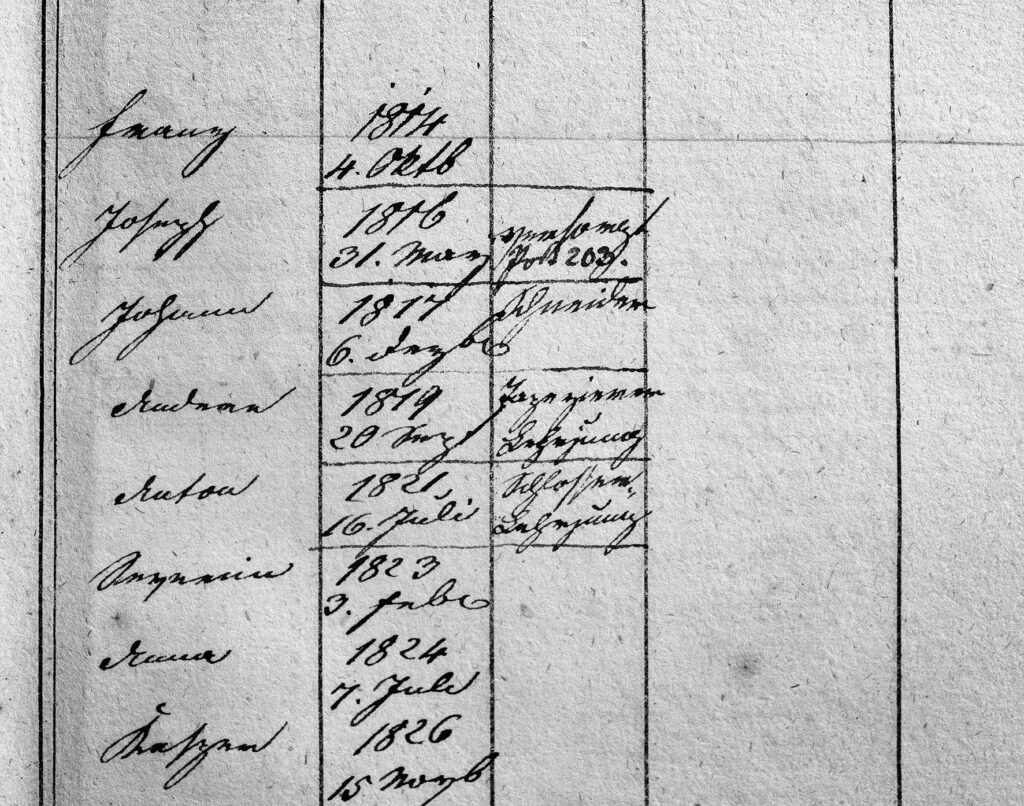 Franz
1814
4. Oktb
Joseph
1816
versorgt
31. März
Post 203.
Johann
1817
Schneider
6. Dezbr
Andreas
1819
Tapezierer
20 Sept
Lehrjung
Anton
1821
Schlosser-
16. Juli
Lehrjung
Severin
1823
3. Febr
Anna
1824
7. Juli
Kasper
1826
15 Novb